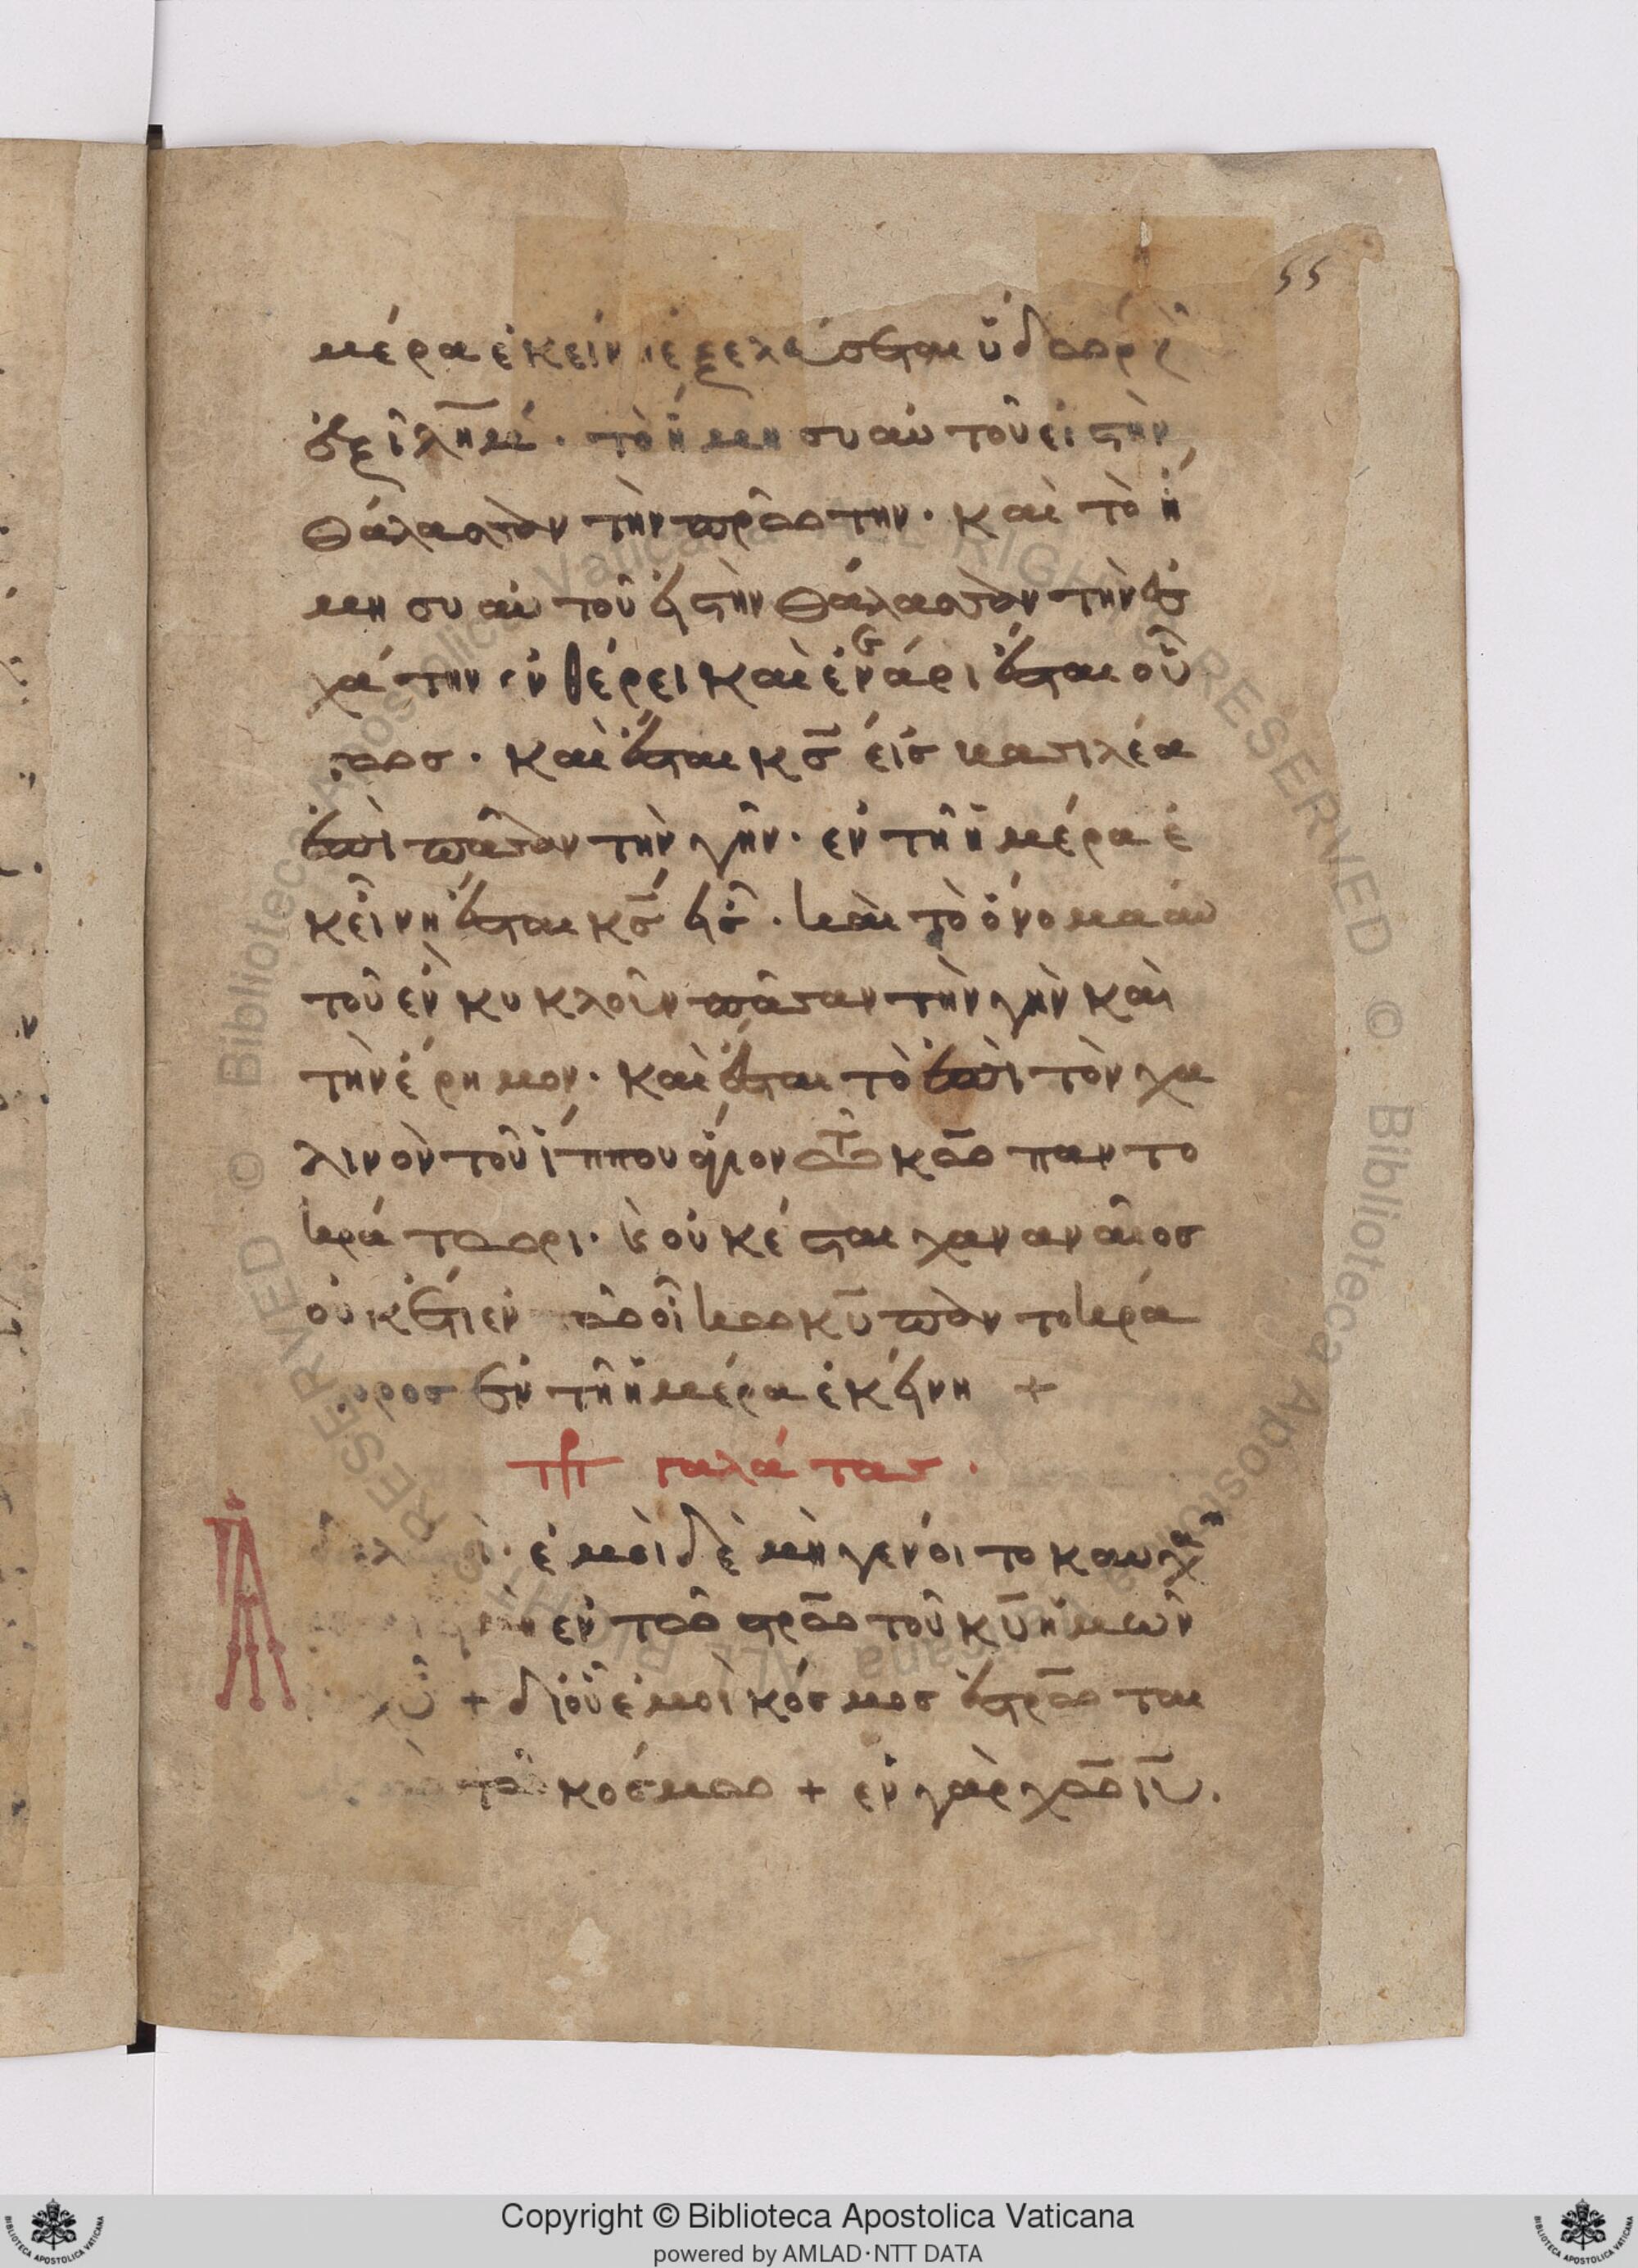 55
μέρα ἐκείν ἐξελεύσεται ὕδωρ
ἐξ ἰλῆμ· τὸ ἥμησυ αὐτοῦ εἰς τὴν
θάλασσαν τὴν πρώτην· καὶ τὸ ἥ
μησυ αὐτοῦ εἰς τὴν θάλασσαν τὴν ἐσ
χάτην ἐν θέρει καὶ ἐν ἔαρι ἔσται οὕ
τως· καὶ ἔσται κς εἰς βασιλέα
ἐπὶ πᾶσαν τὴν γῆν· ἐν τῆ ἡμέρα ἐ
κεῖνη ἔσται κς εἷς· καὶ τὸ ὄνομα αὐ
τοῦ ἐν κυκλοῖν πᾶσαν τὴν γὴν καὶ
τὴν ἔρημον· καὶ ἔσται τὸ ἐπὶ τὸν χα
λινὸν τοῦ ἵππου ἅγιον τῶ κω παντο
κράτωρι· κ οὐκέσται χαναναῖος
οὐκέτι ἐν τῶ οἴκω κυ παν τοκρά
τορος ἐν τῆ ἡμέρα ἐκείνη +
πρ γαλάτας·
ἐμοὶ δὲ μὴ γένοιτο καυχα
ἐν τῶ στρω τοῦ κυ ἡμῶν
χυ + δι' οὗ ἐμοὶ κόσμος ἐστρω ται
τῶ κόσμω + ἐν γὰρ χω ιυ.
Copyright © Biblioteca Apostolica Vaticana
powered by AMLAD·NTT DATA